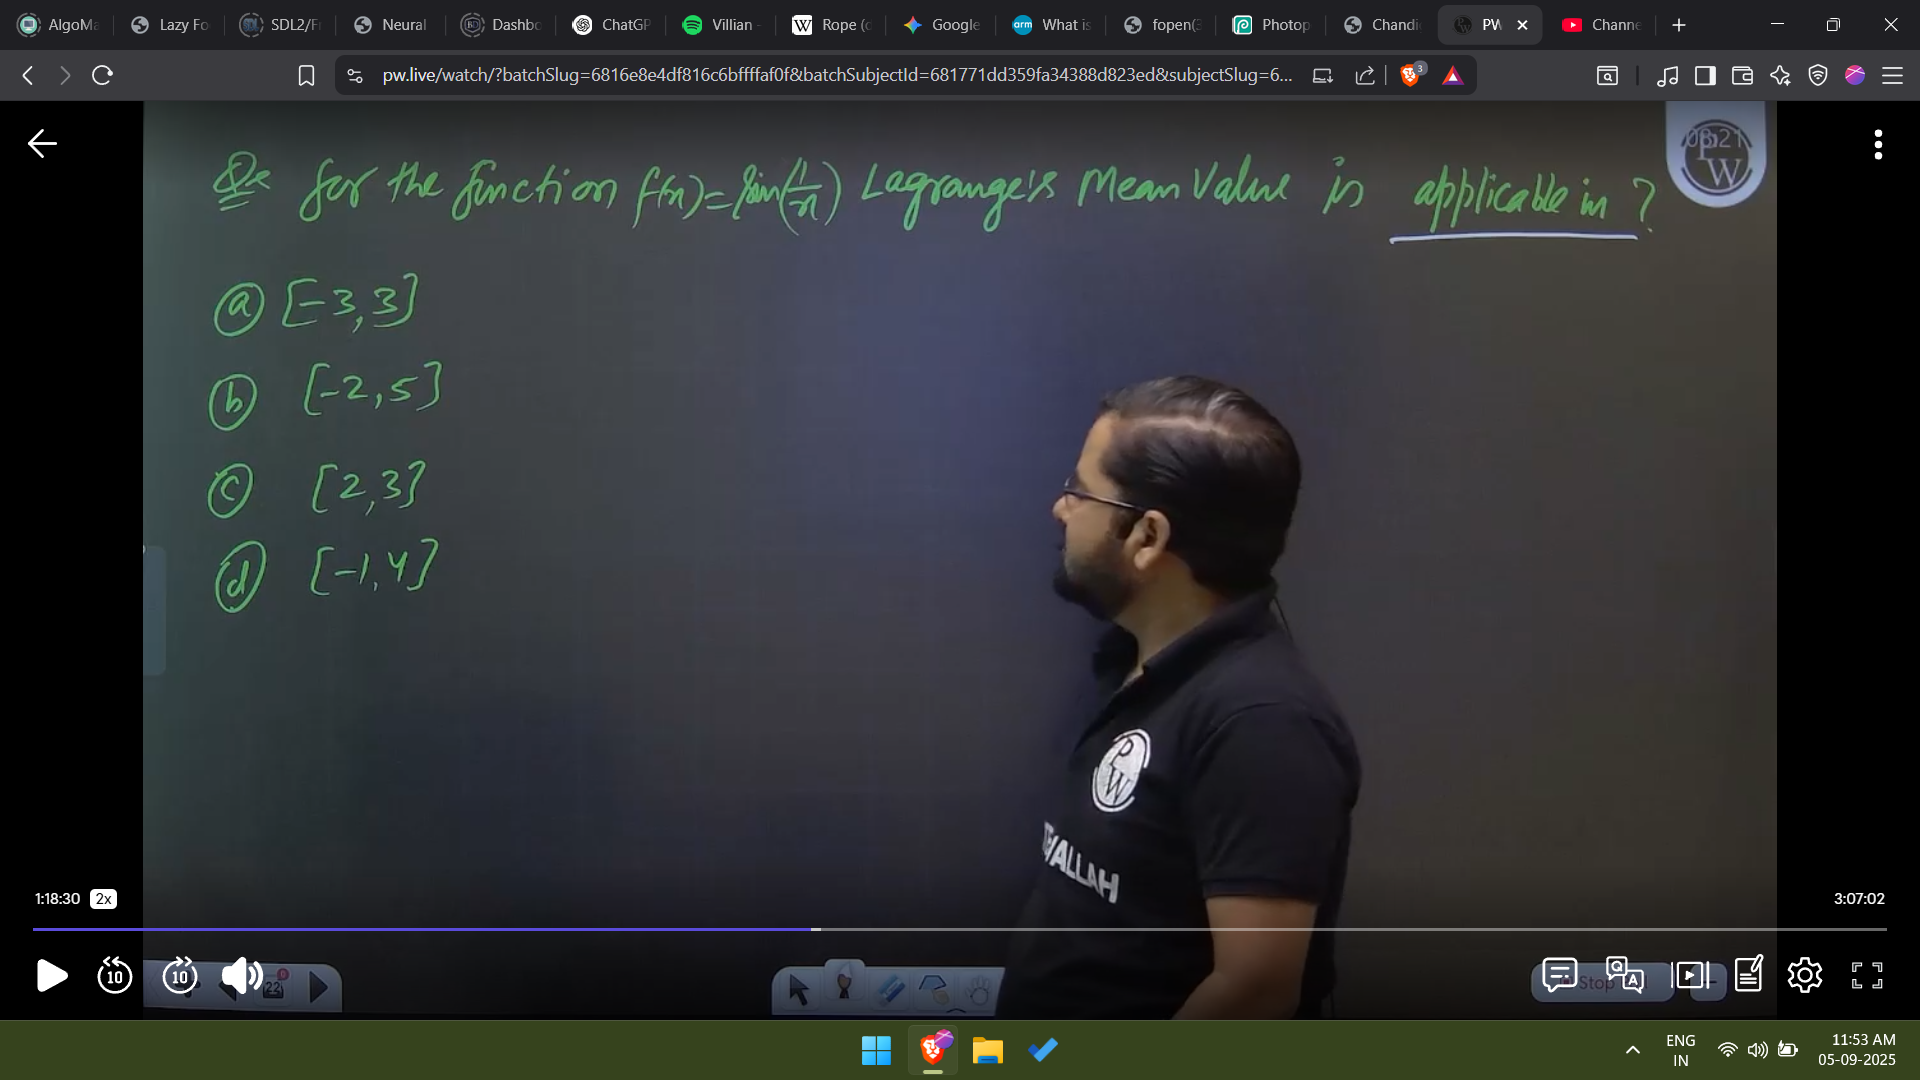 AlgoMa
Lazy Fo
SDL2/F
Neural
Dashbo
ChatGP
Villian -
Rope (
Google
What is
fopen(3
Photop
Chandi
PW
Channe
pw.live/watch/?batchSlug=6816e8e4df816c6bffffaf0f&batchSubjectId=681771dd359fa34388d823ed&subjectSlug=6...
3
Qs for the function f(x)=sin(1/x) Lagrange's Mean Value is applicable in ?
08:21
PW
ⓐ [-3,3]
ⓑ [-2,5]
ⓒ [2,3]
ⓓ [-1,4]
PW
WALLAH
1:18:30 2x
3:07:02
10
10
22
Stop
ENG
IN
11:53 AM
05-09-2025